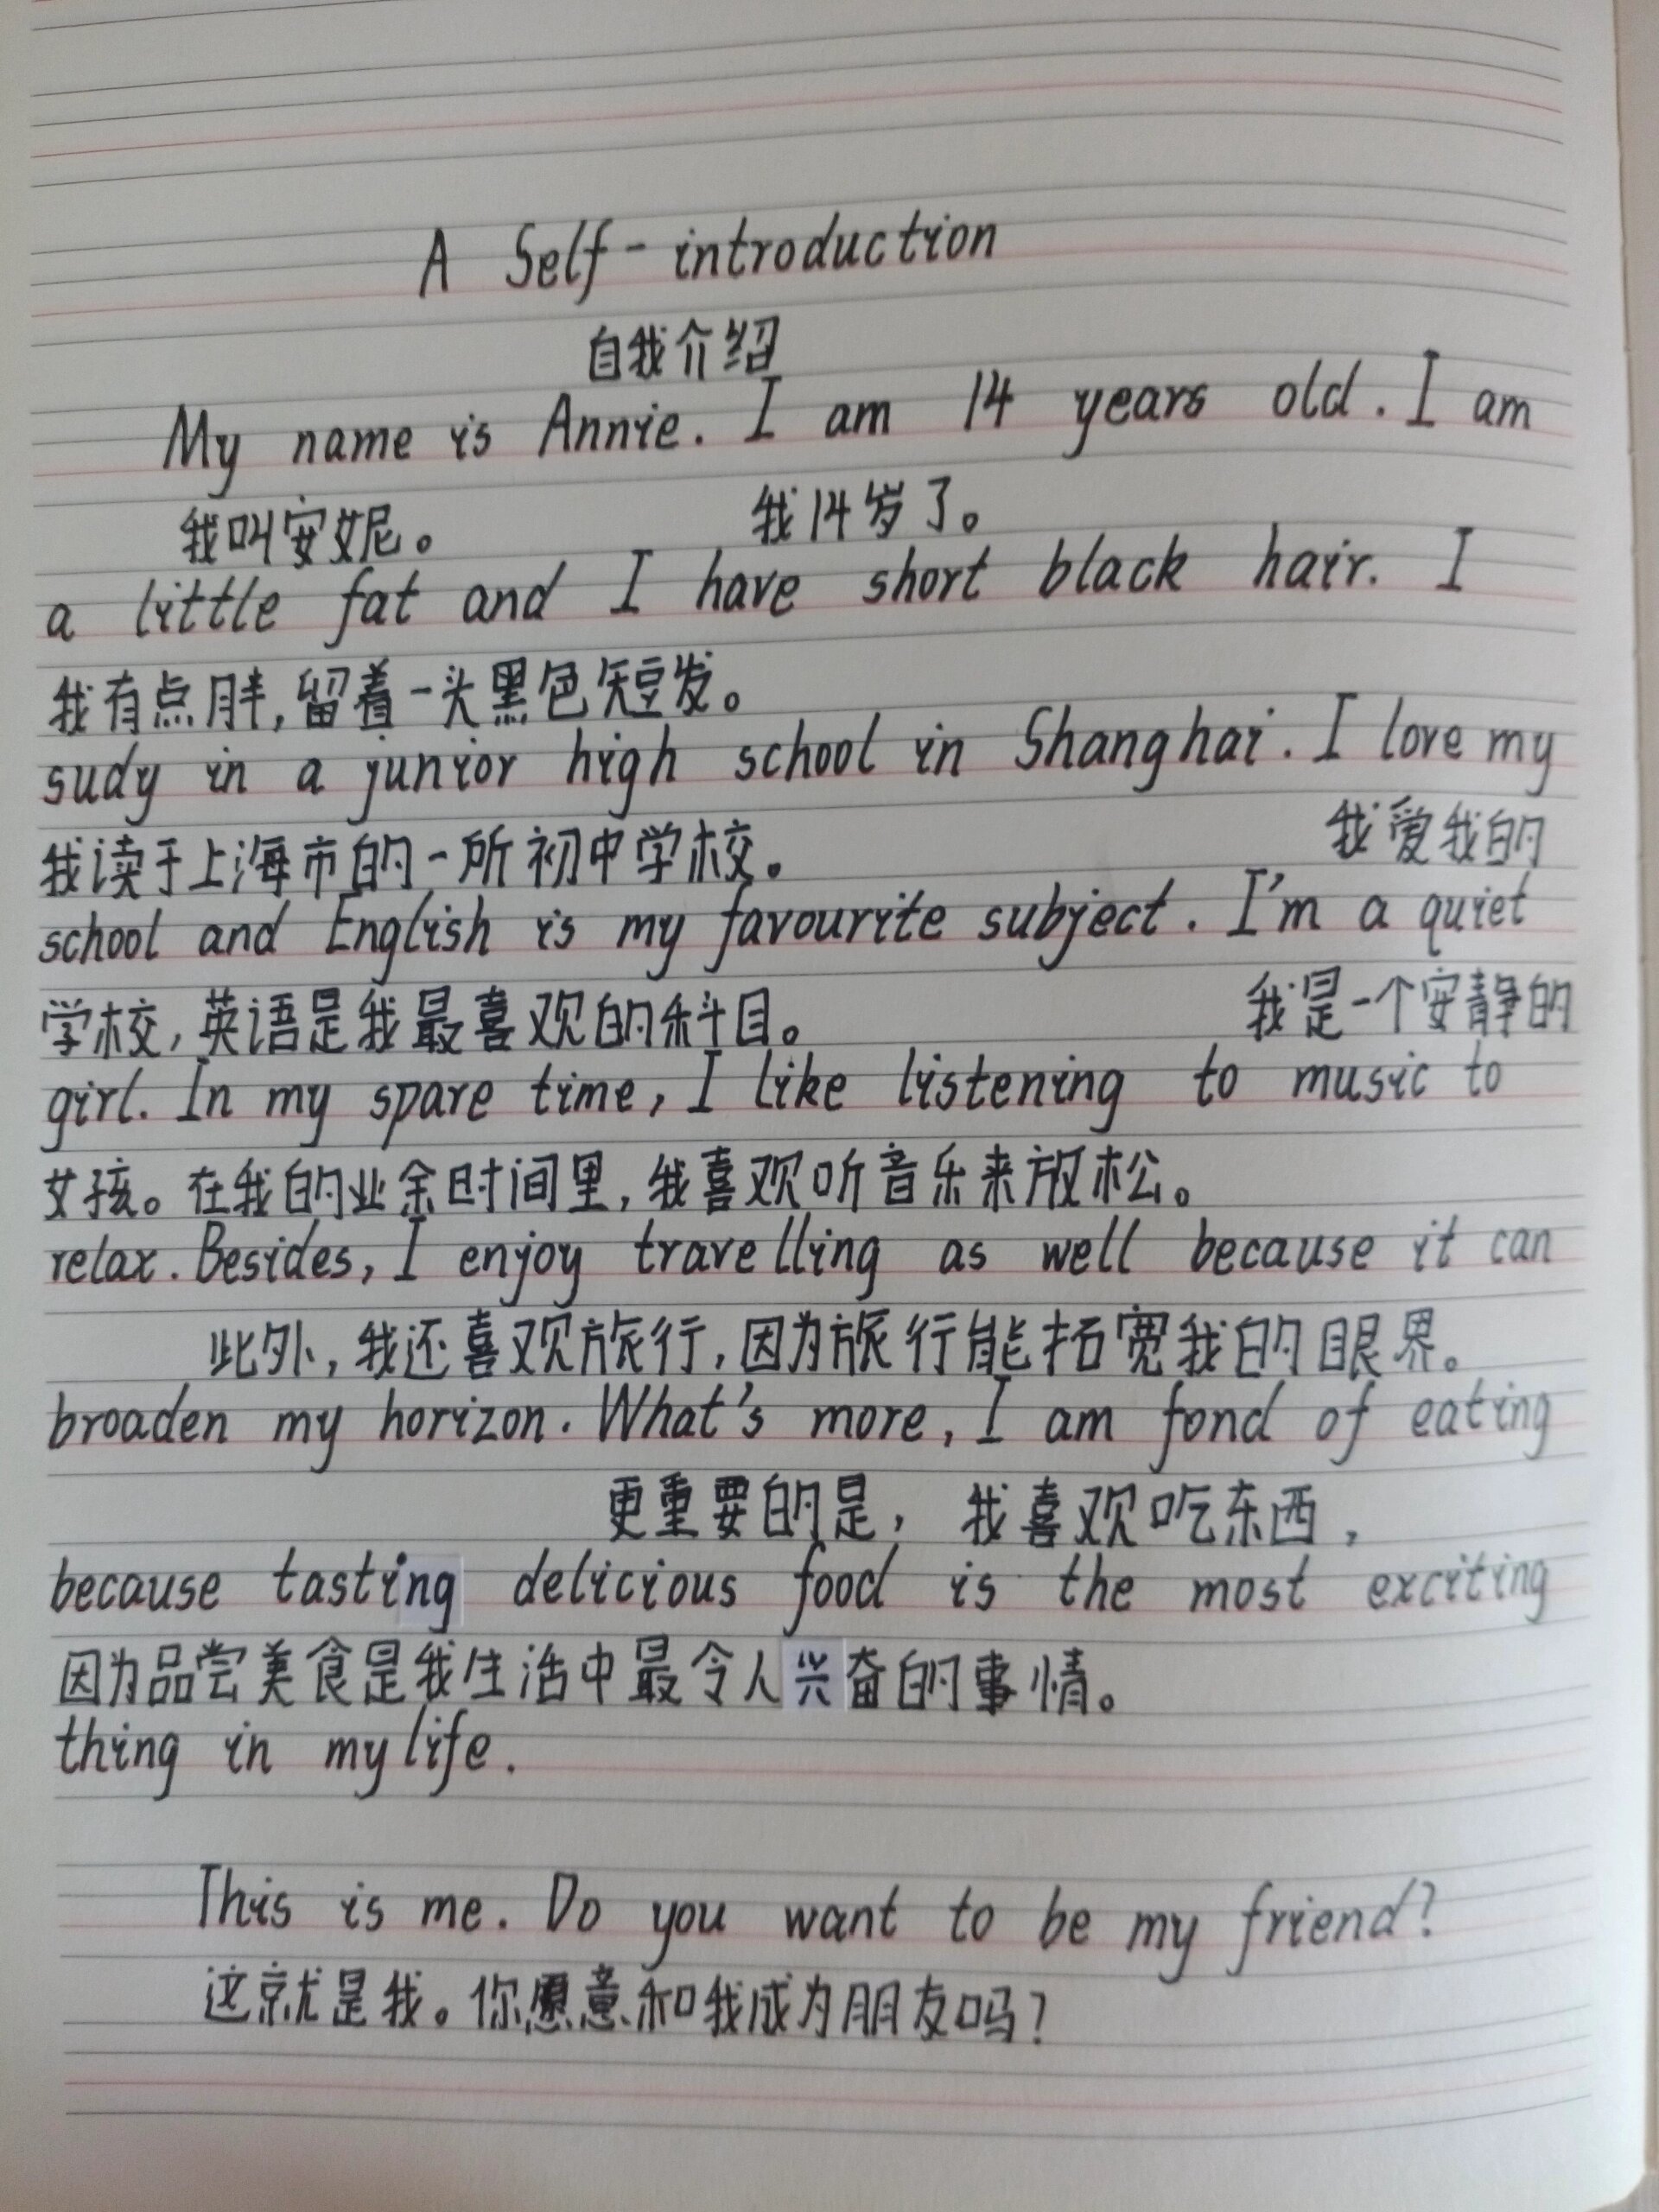 A Self-introduction
自我介绍
My name is Annie. I am 14 years old. I am
我叫安妮。 我14岁了。
a little fat and I have short black hair. I
我有点胖,留着一头黑色短发。
sudy in a junior high school in Shanghai. I love my
我读于上海市的一所初中学校。 我爱我的
school and English is my favourite subject. I'm a quiet
学校,英语是我最喜欢的科目。 我是一个安静的
girl. In my spare time, I like listening to music to
女孩。在我的业余时间里,我喜欢听音乐来放松。
relax. Besides, I enjoy travelling as well because it can
此外,我还喜欢旅行,因为旅行能拓宽我的眼界。
broaden my horizon. What's more, I am fond of eating
更重要的是, 我喜欢吃东西,
because tasting delicious food is the most exciting
因为品尝美食是我生活中最令人兴奋的事情。
thing in my life.
This is me. Do you want to be my friend?
这就是我。你愿意和我成为朋友吗?